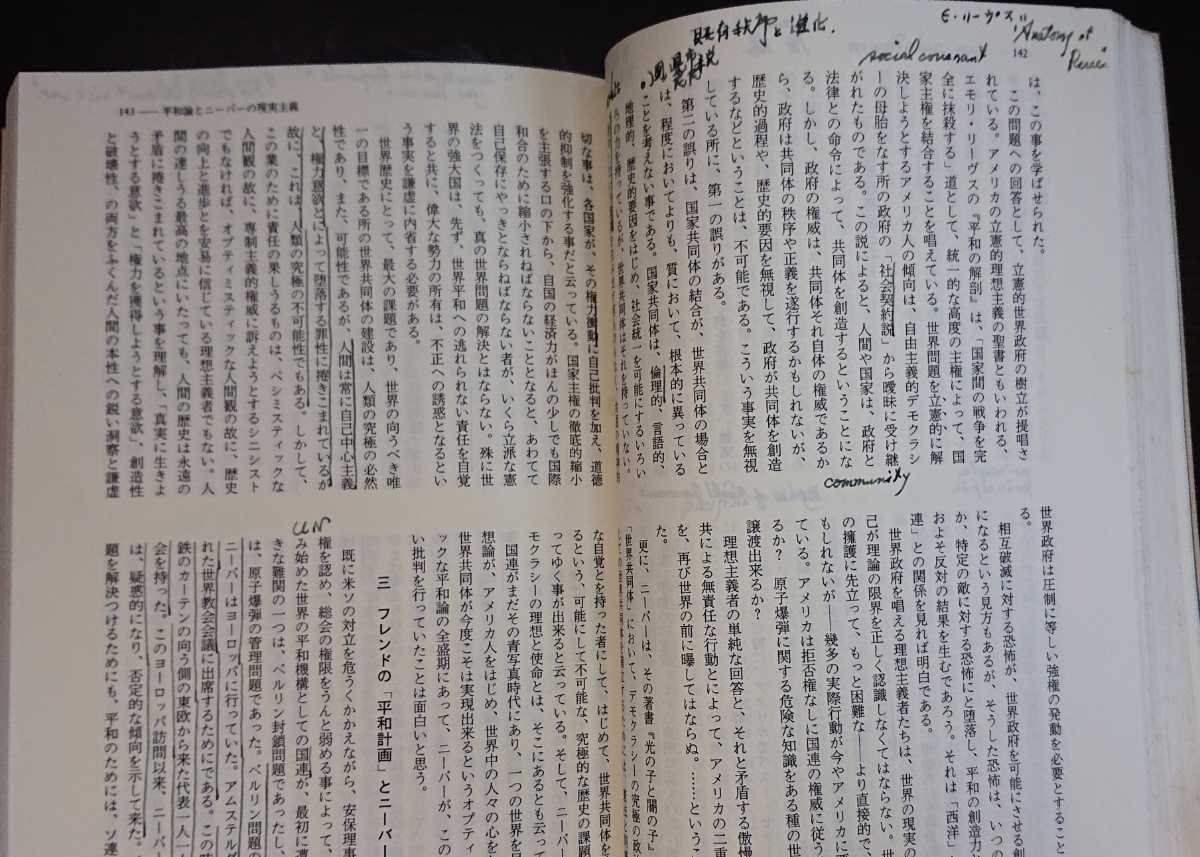 E・リーヴス
"Anatomy of
既存秩序と進化.
social covenant
142
は、この事を学ばせられた。
この問題への回答として、立憲的世界政府の樹立が提唱さ
れている。アメリカの立憲的理想主義の聖書ともいわれる、
エモリ・リーヴスの『平和の解剖』は、「国家間の戦争を完
全に抹殺する」道として、統一的な高度の主権によって、国
家主権を結合することを唱えている。世界問題を立憲的に解
決しようとするアメリカ人の傾向は、自由主義的デモクラシ
ーの母胎をなす所の政府の「社会契約説」から曖昧に受け継
がれたものである。この説によると、人間や国家は、政府と
法律との命令によって、共同体を創造するということにな
る。しかし、政府の権威は、共同体それ自体の権威であるか
ら、政府は共同体の秩序や正義を遂行するかもしれないが、
歴史的過程や、歴史的要因を無視して、政府が共同体を創造
するなどということは、不可能である。こういう事実を無視
している所に、第一の誤りがある。
第二の誤りは、国家共同体の結合が、世界共同体の場合と
は、程度においてよりも、質において、根本的に異っている
ことを考えない事である。国家共同体は、倫理的、言語的、
地理的、歴史的要因をはじめ、社会統一を可能にするいろい
community
世界政府は圧制に等しい強権の発動を必要とすること
る。
相互破滅に対する恐怖が、世界政府を可能にさせる創
になるという見方もあるが、そうした恐怖は、いつの
か、特定の敵に対する恐怖にと堕落し、平和の創造力と
およそ反対の結果を生むであろう。それは「西洋」
連」との関係を見れば明白である。
世界政府を唱える理想主義者たちは、世界の現実の
己が理論の限界を正しく認識しなくてはならない。世
の擁護に先立って、もっと困難な――より直接的で、
もしれないが――幾多の実際行動が今やアメリカに要
ている。アメリカは拒否権なしに国連の権威に従う
るか? 原子爆弾に関する危険な知識をある種の世
譲渡出来るか?
理想主義者の単純な回答と、それと矛盾する傲慢
共による無責任な行動とによって、アメリカの二重
を、再び世界の前に曝してはならぬ。……という
た。
更に、ニーバーは、その著書『光の子と闇の子』
「世界共同体」において、デモクラシーの究極の政
143 ── 平和論とニーバーの現実主義
切な事は、各国家が、その権力衝動に自己批判を加え、道徳
的抑制を強化する事だと云っている。国家主権の徹底的縮小
を主張する口の下から、自国の経済力がほんの少しでも国際
和合のために縮小されねばならないこととなると、あわてて
自己保存にやっきとならねばならない者が、いくら立派な憲
法をつくっても、真の世界問題の解決とはならない。殊に世
界の強大国は、先ず、世界平和への逃れられない責任を自覚
すると共に、偉大な勢力の所有は、不正への誘惑となるとい
う事実を謙虚に内省する必要がある。
世界歴史にとって、最大の課題であり、世界の向うべき唯
一の目標である所の世界共同体の建設は、人類の究極の必然
性であり、また、可能性であるが、人間は常に自己中心主義
と、権力意欲とによって堕落する罪性に捲きこまれているが
故に、これは、人類の究極の不可能性でもある。しかして、
この業のために責任の果しうるものは、ペシミスティックな
人間観の故に、専制主義的権威に訴えようとするシニシスト
でもなければ、オプティミスティックな人間観の故に、歴史
の向上と進歩とを安易に信じている理想主義者でもない。人
間の達しうる最高の地点にいたっても、人間の歴史は永遠の
矛盾に捲きこまれているという事を理解し、真実に生きよ
うとする意欲」と「権力を獲得しようとする意欲」、創造性
と破壊性、の両方をふくんだ人間の本性への鋭い洞察と謙虚
な自覚とを持った者にして、はじめて、世界共同体を
るという、可能にして不可能な、究極的な歴史の課題
ってゆく事が出来ると云っている。そして、ニーバー
モクラシーの理想と使命とは、そこにあるとも云って
国連がまだその青写真時代にあり、一つの世界を目
想論が、アメリカ人をはじめ、世界中の人々の心を
世界共同体が今度こそは実現出来るというオプティ
ックな平和論の全盛期にあって、ニーバーが、この
い批判を行っていたことは面白いと思う。
三 フレンドの「平和計画」とニーバー
UN
既に米ソの対立を危うくかかえながら、安保理事
権を認め、総会の権限をうんと弱める事によって、
み始めた世界の平和機構としての国連が、最初に遭
きな難関の一つは、ベルリン封鎖問題であったし、
は、原子爆弾の管理問題であった。ベルリン問題の
ニーバーはヨーロッパに行っていた。アムステルダ
れた世界教会会議に出席するためにである。この時
鉄のカーテンの向う側の東欧から来た代表一人一人
会を持った。このヨーロッパ訪問以来、ニーバー
は、疑惑的になり、否定的な傾向を示して来た。
題を解決つけるためにも、平和のためには、ソ連